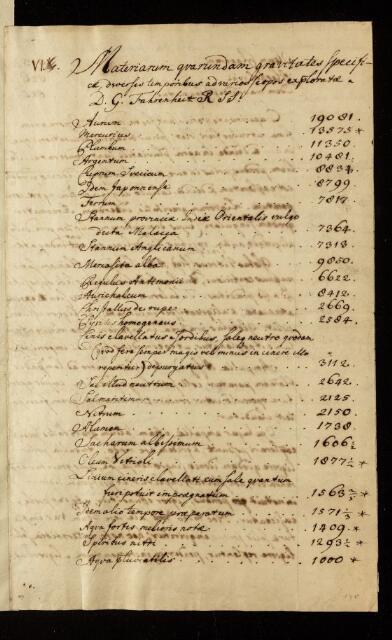 VIX. Materiarum quarundam gravitates specifi-
cæ, diversis temporibus ad varios scopos exploratæ a
D. G. Fahrenheit R. S. S.
Aurum 19081.
Mercurius 13575 *
Plumbum 11350
Argentum 10481.
Cuprum Svecicum 8834
Idem Japonnense 8799
Ferrum 7817
Stannum provinciæ Indiæ Orientalis vulgo
dicta Malacja 7364
Stannum Anglicanum 7313
Marcasita alba 9850
Regulus Antimonii 6622
Aurichalcum 8412
Cristallus de rupe 2669
homogeneus 2584
Cinis clavellatus a sordibus, saleq neutro quodam
(quod fere semper magis vel minus in cinere illo
reperitur) depuratus 3112
Sal illud neutrum 2642
Sal marinum 2125
Nitrum 2150
Alumen 1738
Sacharum albissimum 1606½
Oleum Vitrioli 1877½ *
Lixivium cineris clavellati cum sale quantum
fieri potuit impregnatum 1563½ *
Idem alio tempore præparatum 1571½ *
Aqua fortis melioris notæ 1409 *
Spiritus nitri 1293½ *
Aqua pluviatilis 1000 *